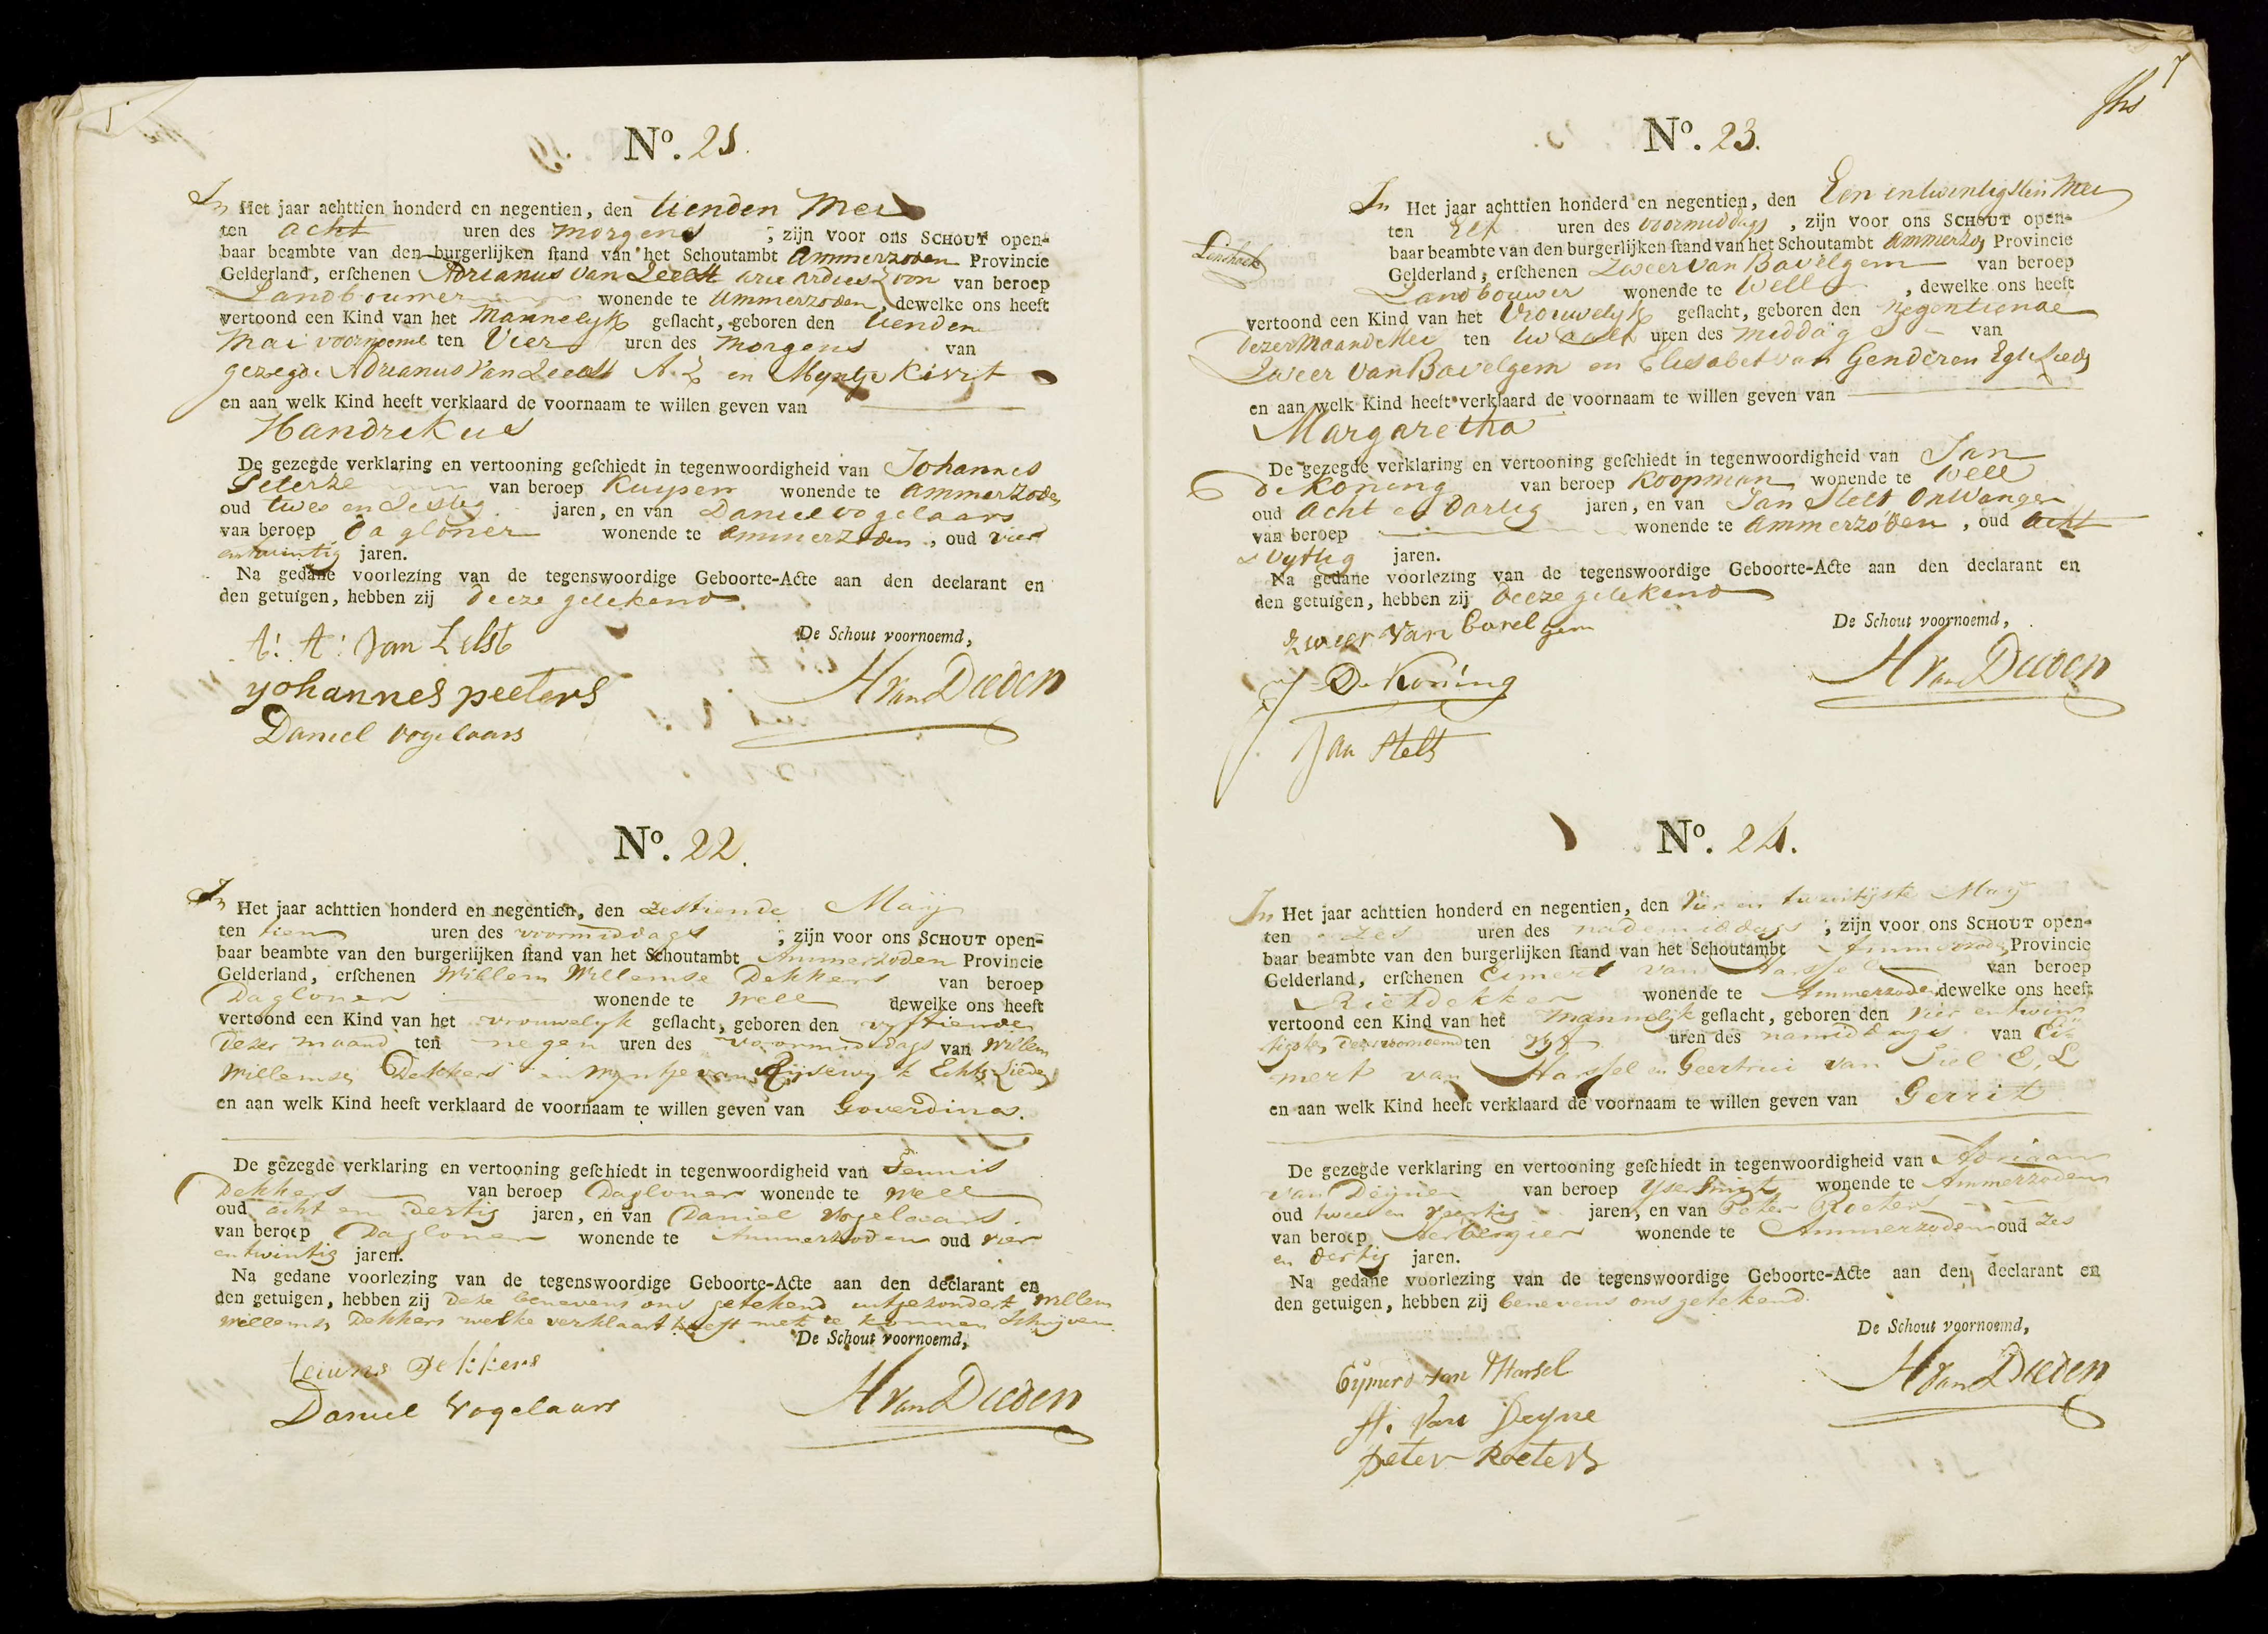 No. 21.
In Het jaar achttien honderd en negentien, den tienden Mei
ten acht uren des morgens ; zijn voor ons SCHOUT open-
baar beambte van den burgerlijken stand van het Schoutambt Ammerzoden Provincie
Gelderland, erschenen Adrianus van Leest zoon van beroep
Landbouwer wonende te Ammerzoden, dewelke ons heeft
vertoond een Kind van het Mannelyk geslacht, geboren den tienden
Mai voornoemt ten Vier uren des Morgens van
gezegde Adrianus van Leest A. Z en Myntje Kivit
en aan welk Kind heeft verklaard de voornaam te willen geven van
Handrikus
De gezegde verklaring en vertooning geschiedt in tegenwoordigheid van Johannes
Peterze van beroep Kuyper wonende te Ammerzoden
oud twee en Sestig jaren, en van Daniel vogelaars
van beroep dagloner wonende te Ammerzoden, oud vier
entwintig jaren.
Na gedane voorlezing van de tegenswoordige Geboorte-Acte aan den declarant en
den getuigen, hebben zij deeze getekend
De Schout voornoemd,
A: A: van Lelst
yohannes peeters
H van Dieden
Daniel vogelaars
No. 22.
In Het jaar achttien honderd en negentien, den zestiende Maij
ten tien uren des voormiddags ; zijn voor ons SCHOUT open-
baar beambte van den burgerlijken stand van het Schoutambt Ammerzoden Provincie
Gelderland, erschenen Willem Willemse Dekkers van beroep
Dagloner wonende te Well dewelke ons heeft
vertoond een Kind van het vrouwelyk geslacht, geboren den vyftiende
dezer maand ten negen uren des voormiddags van Willem
Willemse Dekkers en Myntje van Rijsewyk Echte Lieden
en aan welk Kind heeft verklaard de voornaam te willen geven van Goverdina.
De gezegde verklaring en vertooning geschiedt in tegenwoordigheid van Teunis
Dekkers van beroep Dagloner wonende te Well
oud acht en dertig jaren, en van Daniel Vogelaars
van beroep Dagloner wonende te Ammerzoden oud vier
entwintig jaren.
Na gedane voorlezing van de tegenswoordige Geboorte-Acte aan den declarant en
den getuigen, hebben zij deze benevens ons getekend uitgezondert Willem
Willemse Dekkers welke verklaart heeft niet te konnen Schrijven.
De Schout voornoemd,
teiuns Dekkers
H van Dieden
Daniel Vogelaars
7
No. 23.
In Het jaar achttien honderd en negentien, den Een entwentigsten Mei
ten Elf uren des voormiddags , zijn voor ons SCHOUT open-
baar beambte van den burgerlijken stand van het Schoutambt Ammerzo Provincie
Gelderland, erschenen Zweer van Bavelgem van beroep
Landbouwer wonende te Well , dewelke ons heeft
vertoond een Kind van het Vrouwelyk geslacht, geboren den Negentiende
dezer Maand Mei ten twaalf uren des middag van
Zweer van Bavelgem en Elisabet van Genderen
en aan welk Kind heeft verklaard de voornaam te willen geven van
Margaretha
De gezegde verklaring en vertooning geschiedt in tegenwoordigheid van Jan
de Koning van beroep Koopman wonende te Well
oud Acht en dartig jaren, en van Jan Stelt Ontvanger
van beroep wonende te Ammerzoden, oud Acht
Vyftig jaren.
Na gedane voorlezing van de tegenswoordige Geboorte-Acte aan den declarant en
den getuigen, hebben zij deeze getekend
De Schout voornoemd,
Zweer van bavelgem
H van Dieden
De Koning
Jan Stelt
No. 24.
In Het jaar achttien honderd en negentien, den Vier en twentigste May
ten zes uren des nademiddags ; zijn voor ons SCHOUT open-
baar beambte van den burgerlijken stand van het Schoutambt Ammerzoden Provincie
Gelderland, erschenen Eimert van Harssel van beroep
Rietdekker wonende te Ammerzoden dewelke ons heeft
vertoond een Kind van het Mannelijk geslacht, geboren den vier entwin
tigste dezer voornoemd ten vyf uren des namiddags van Ei-
mert van Harssel en Geertrui van Tiel E. L
en aan welk Kind heeft verklaard de voornaam te willen geven van Gerrit
De gezegde verklaring en vertooning geschiedt in tegenwoordigheid van Adriaan
van Deijnen van beroep Yser Smit wonende te Ammerzoden
oud twee en veertig jaren, en van Peter Roeters
van beroep Herbergier wonende te Ammerzoden oud zes
en dertig jaren.
Na gedane voorlezing van de tegenswoordige Geboorte-Acte aan den declarant en
den getuigen, hebben zij benevens ons getekend.
De Schout voornoemd,
Eymerd van Harsel
H van Dieden
A. van Deyne
peter Roeters